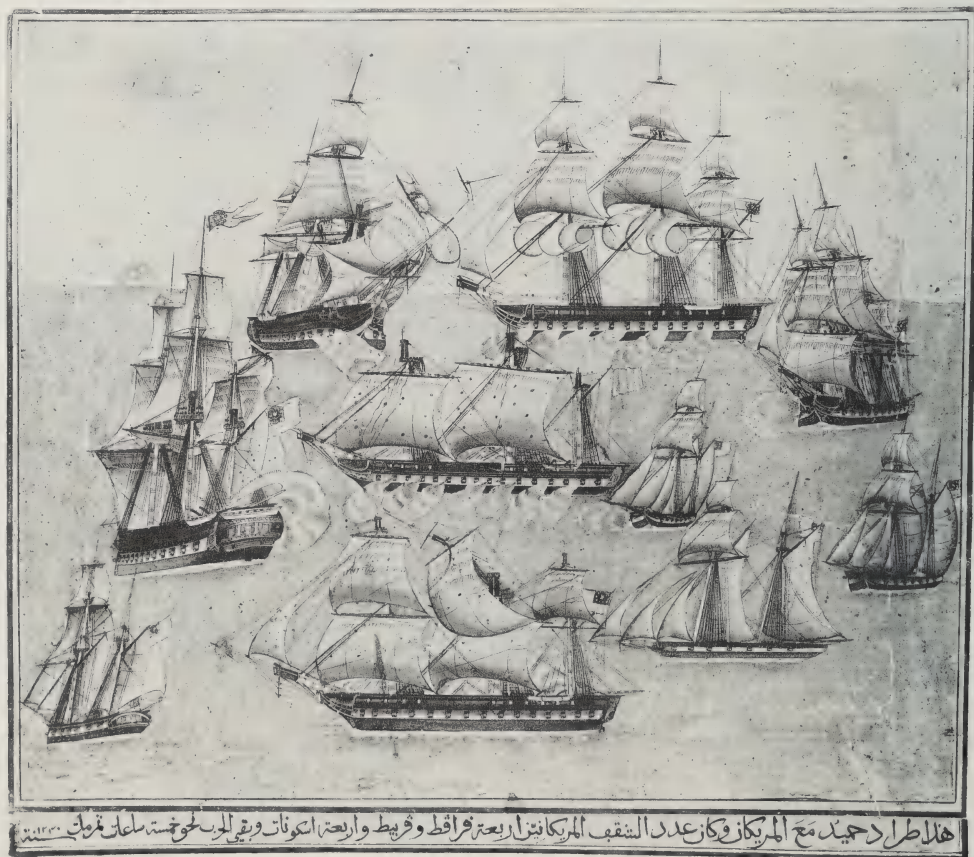 هذا طراد حميد مع المريكان وكان عدد الشقف المريكانيز اربعة فراقط وقربيط واربعة اسكونات وبقي الحرب نحو خمسة ساعات سنة ١٢٣٠